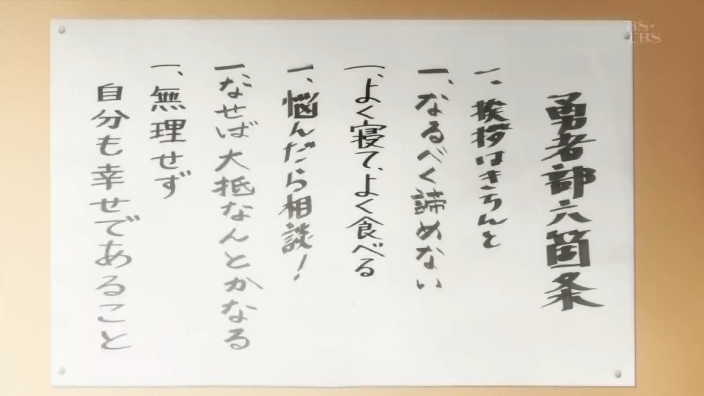 勇者部六箇条
一、挨拶はきちんと
一、なるべく諦めない
一、よく寝て、よく食べる
一、悩んだら相談!
一、なせば大抵なんとかなる
一、無理せず
自分も幸せであること
BS-TBS